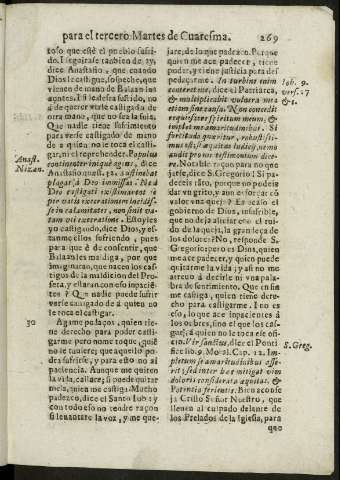 para el tercero Martes de Cuaresma. 269
toso que esté el pueblo sufri-
do. I segoirase tãbien de ay,
dice Anastasio, que cuando
Dios le castigue, sospeche, que
vienen de mano de Balaan los
açotes. I si desea sufrido, no à
de querer verse castigado de
otra mano, que no sea la suia.
Que nadie tiene sufrimiento
para verse castigado de mano
de a quien no le toca el casti-
gar, ni el reprehender. Populus
continenter inique agens, dice
Anastasio quæst. 32. austinebat
plagas à Deo immissas. Ne à
Deo castigati existimarent se
per vatis execrationem incidis-
se in calamitates, non sinit va-
tem uti execratione. Estoy les
yo castigando, dice Dios, y es-
tanmellos sufriendo, pues
para què è de consentir, que
Balaan los maldiga, por que
imaginaran, que nacen los cas-
tigos de la maldicion del Pro-
feta, y estaran con eso inpaciẽ-
tes? Que nadie puede sufrir
verse castigado de à quien no
le toca el castigar.
Anast.
Nizan.
30
Agame pedaços, quien tie-
ne derecho para poder casti-
garme pero nome toque, quiẽ
no le tuviere; que aquello po-
drà sufrirse, y para esto no ai
paciencia. Aunque me quiten
la vida, callarè; si puede quitar-
mela, quien me castiga. Mucho
padezco, dice el Santo Iob: y
con todo eso no tendre raçon
si levantare la voz, y me que-
jare, de lo que padezco. Porque
quien me ace padecer, tiene
poder, y tiene justicia para des-
pedaçarme. In turbine enim
conteret me, dice el Patriarca,
& multiplicabit vulnera mea
etiam sine causa. Non concedit
requiescere spiritum meum, &
implet me amaritudinibus. Si
fortitudo quæritur, robustissi-
mus est, si æquitas iudicij, nemo
audet pro me testimonium dice-
re. Notable raçon para no que-
jarse, dice S. Gregorio! Si pa-
deceis dos, porque no podeis
dar vn grito, y aun esforçar cõ
valor vna queja? Es acaso el
gobierno de Dios, insufrible,
que no deja aliviar cõ el rui-
do de la queja, la gran seça de
los dolores? No, responde S.
Gregorio: pero es Dios, quien
me ace padecer, y quico puede
quitarme la vida; y asi no me
atrevo à decirle ni vna pala-
bra de sentimiento. Que en fin
me castiga, quien tiene dere-
cho para castigarme. I eo es
eso, lo que ace inpacientes,
sino el que à los otros los cas-
tigue, à quien no le toca ese ofi-
cio. Vir sanctus, dice el Ponti-
fice lib. 9. Mo al. Cap. 22. Im-
pletum se amaritudinibus asse-
rit: sed inter hæc mitigat vim
doloris considerata æquitas, &
Potentia ferientis. Bien acconse
ja Cristo Señor Nuestro, que
llenen al culpado delante de
los Prelados de la Iglesia, para
que
Iob. 9.
vers. 17
& 1.
S. Greg.